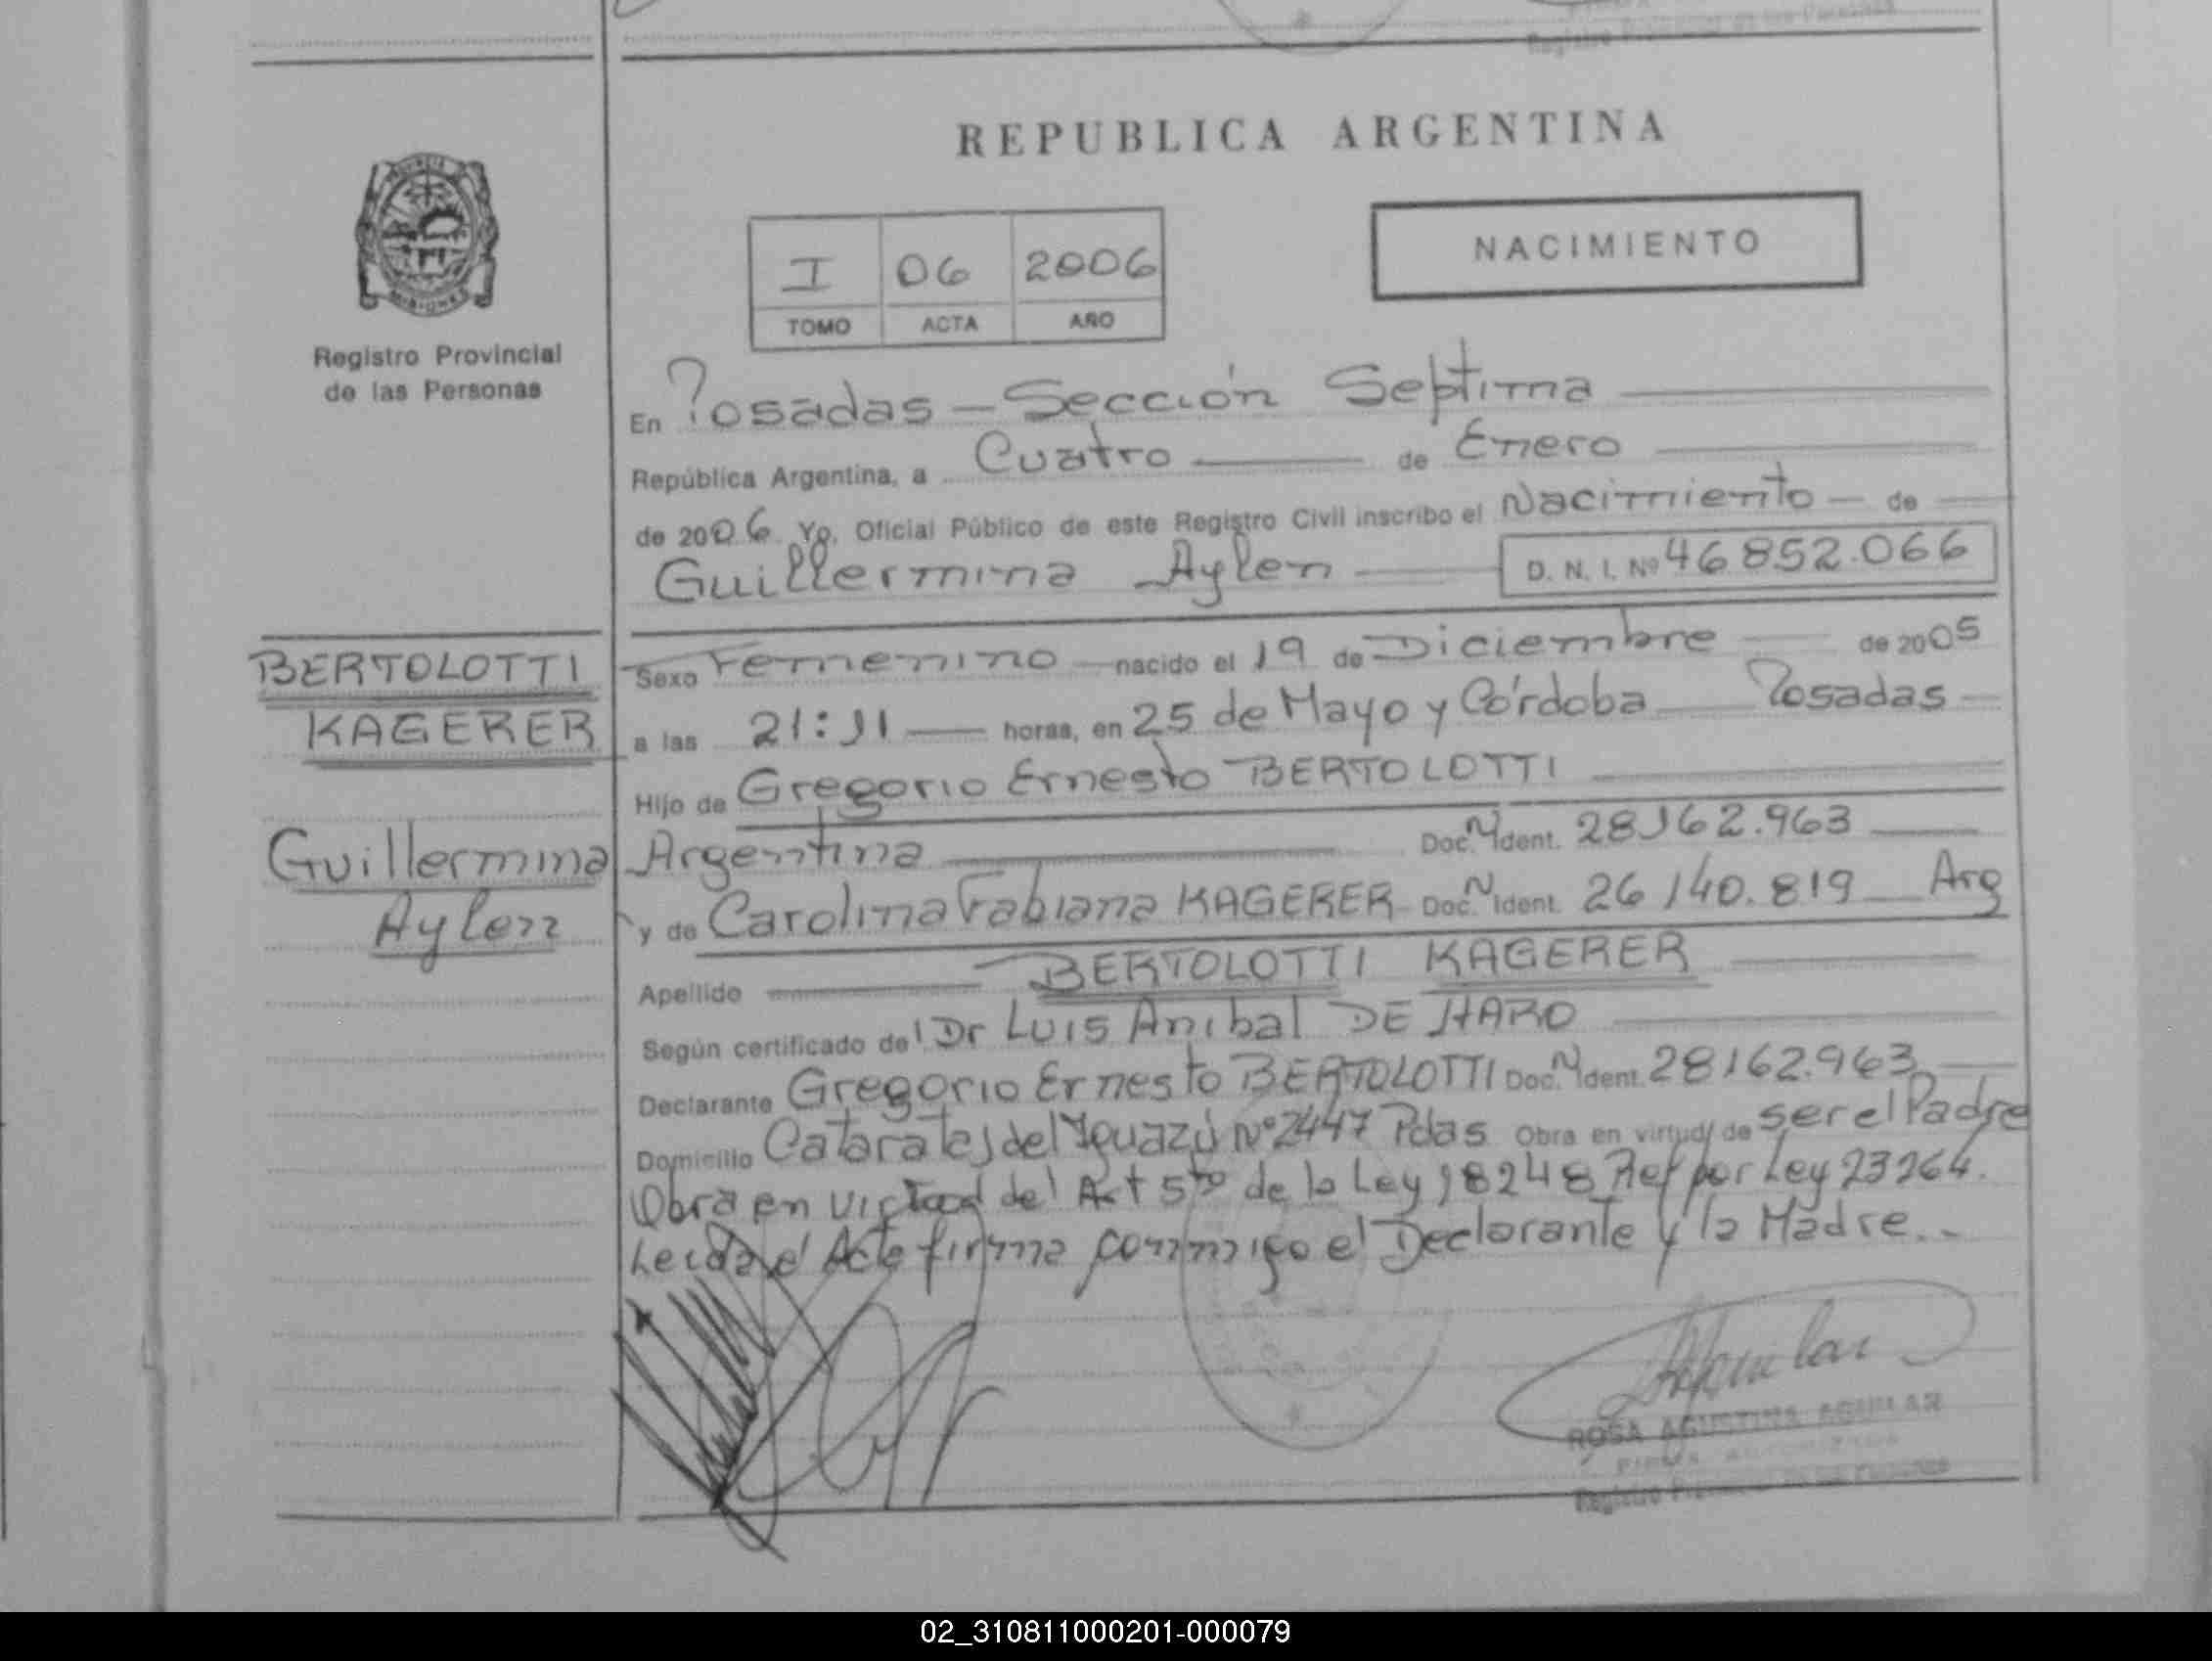 REPUBLICA ARGENTINA
MISIONES
Registro Provincial
de las Personas
I 06 2006
TOMO ACTA AÑO
NACIMIENTO
En Posadas - Sección Septima
República Argentina, a Cuatro de Enero
de 2006 Yo, Oficial Público de este Registro Civil inscribo el Nacimiento de
Guillermina Aylen D. N. I. Nº 46.852.066
BERTOLOTTI
KAGERER
Guillermina
Aylen
Sexo Femenino nacido el 19 de Diciembre de 2005
a las 21:11 horas, en 25 de Mayo y Córdoba Posadas
Hijo de Gregorio Ernesto BERTOLOTTI
Argentina Doc. N Ident. 28162.963
y de Carolina Fabiana KAGERER Doc. N Ident. 26140.819 Arg
Apellido BERTOLOTTI KAGERER
Según certificado del Dr Luis Anibal DE HARO
Declarante Gregorio Ernesto BERTOLOTTI Doc. N Ident. 28162.963
Domicilio Cataratas del Iguazú Nº 2447 Pdas Obra en virtud de ser el Padre
Obra en virtud del Art 5to de la Ley 18248 Ref por Ley 23264.
Leida el Acta firma conmigo el Declarante y la Madre.-
ROSA AGUSTINA AGUILAR
FIRMA AUTORIZADA
Registro Provincial de las Personas
02_310811000201-000079